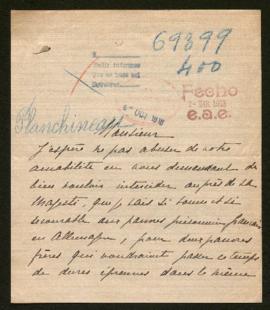 69399
400
Pedir informes
Fecho
2- MAR. 1918
e.a.e.
Planchineau
Monsieur
J'espère ne pas abuser de votre
amabilité en vous demandant de
bien vouloir intercéder auprès de Sa
Majesté, que je sais si bonne et si
secourable aux pauvres prisonniers français
en Allemagne, pour deux pauvres
frères qui voudraient passer ce temps
de dures épreuves dans le même